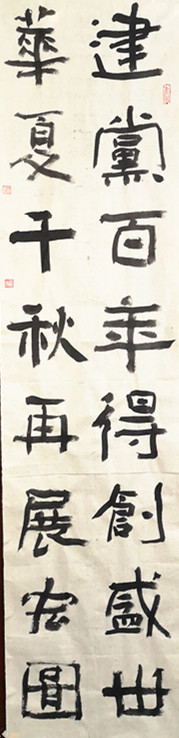 建黨百年得創盛世
華夏千秋再展宏圖